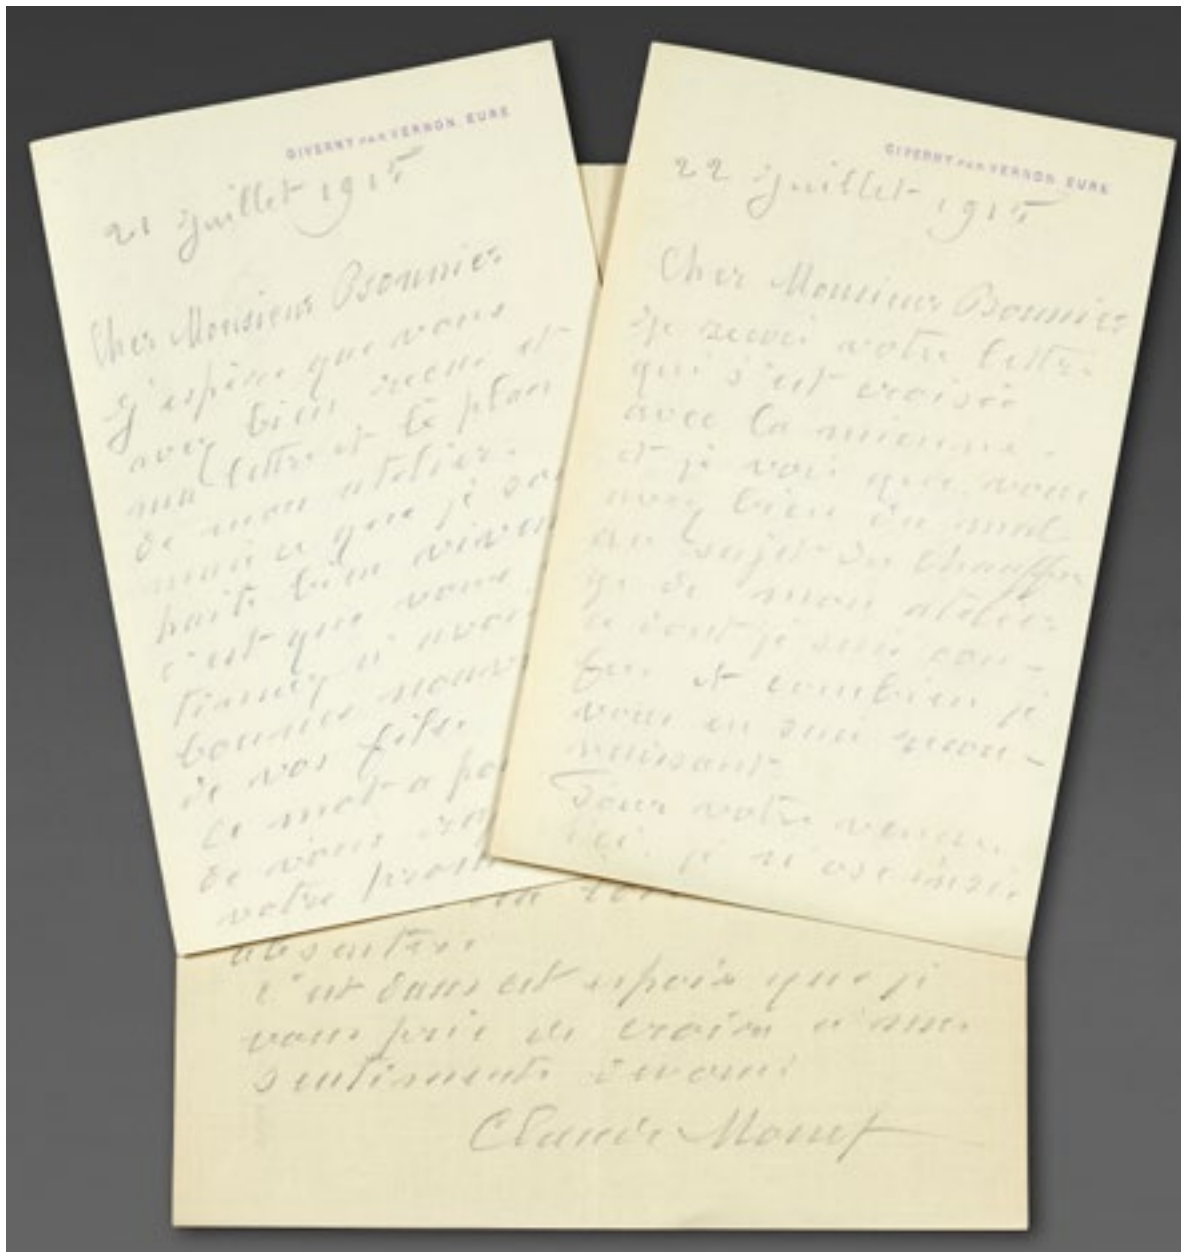 GIVERNY PAR VERNON. EURE
21 Juillet 1915
Cher Monsieur Bonnier
J'espère que vous
avez bien recue et
ma lettre et le plan
de mon atelier.
mais ce que je sou
haite bien vivem
c'est que vous
tinuez à avoir
bonnes nouve
de vos fils.
Ce mot a po
de vous
votre prom
GIVERNY PAR VERNON. EURE
22 Juillet 1915
Cher Monsieur Bonnier
Je recois votre lettre
qui s'est croisée
avec la mienne.
et je vois que vous
avez bien du mal
au sujet du chauffa
ge de mon atelier
ce dont je suis con-
fus et combien je
vous en suis recon-
naissant.
Pour votre venue
ici, je n'ose insis
absenter.
c'est dans cet espoir que je
vous prie de croire à mes
sentiments dévoués
Claude Monet